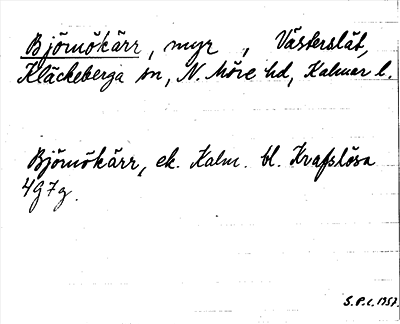 Björnökärr, myr, Västerslät,
Kläckeberga sn, N. Möre hd, Kalmar l.
Björnökärr, ek. Kalm. bl. Kvafslösa
4g7g.
S.P.c. 1957.